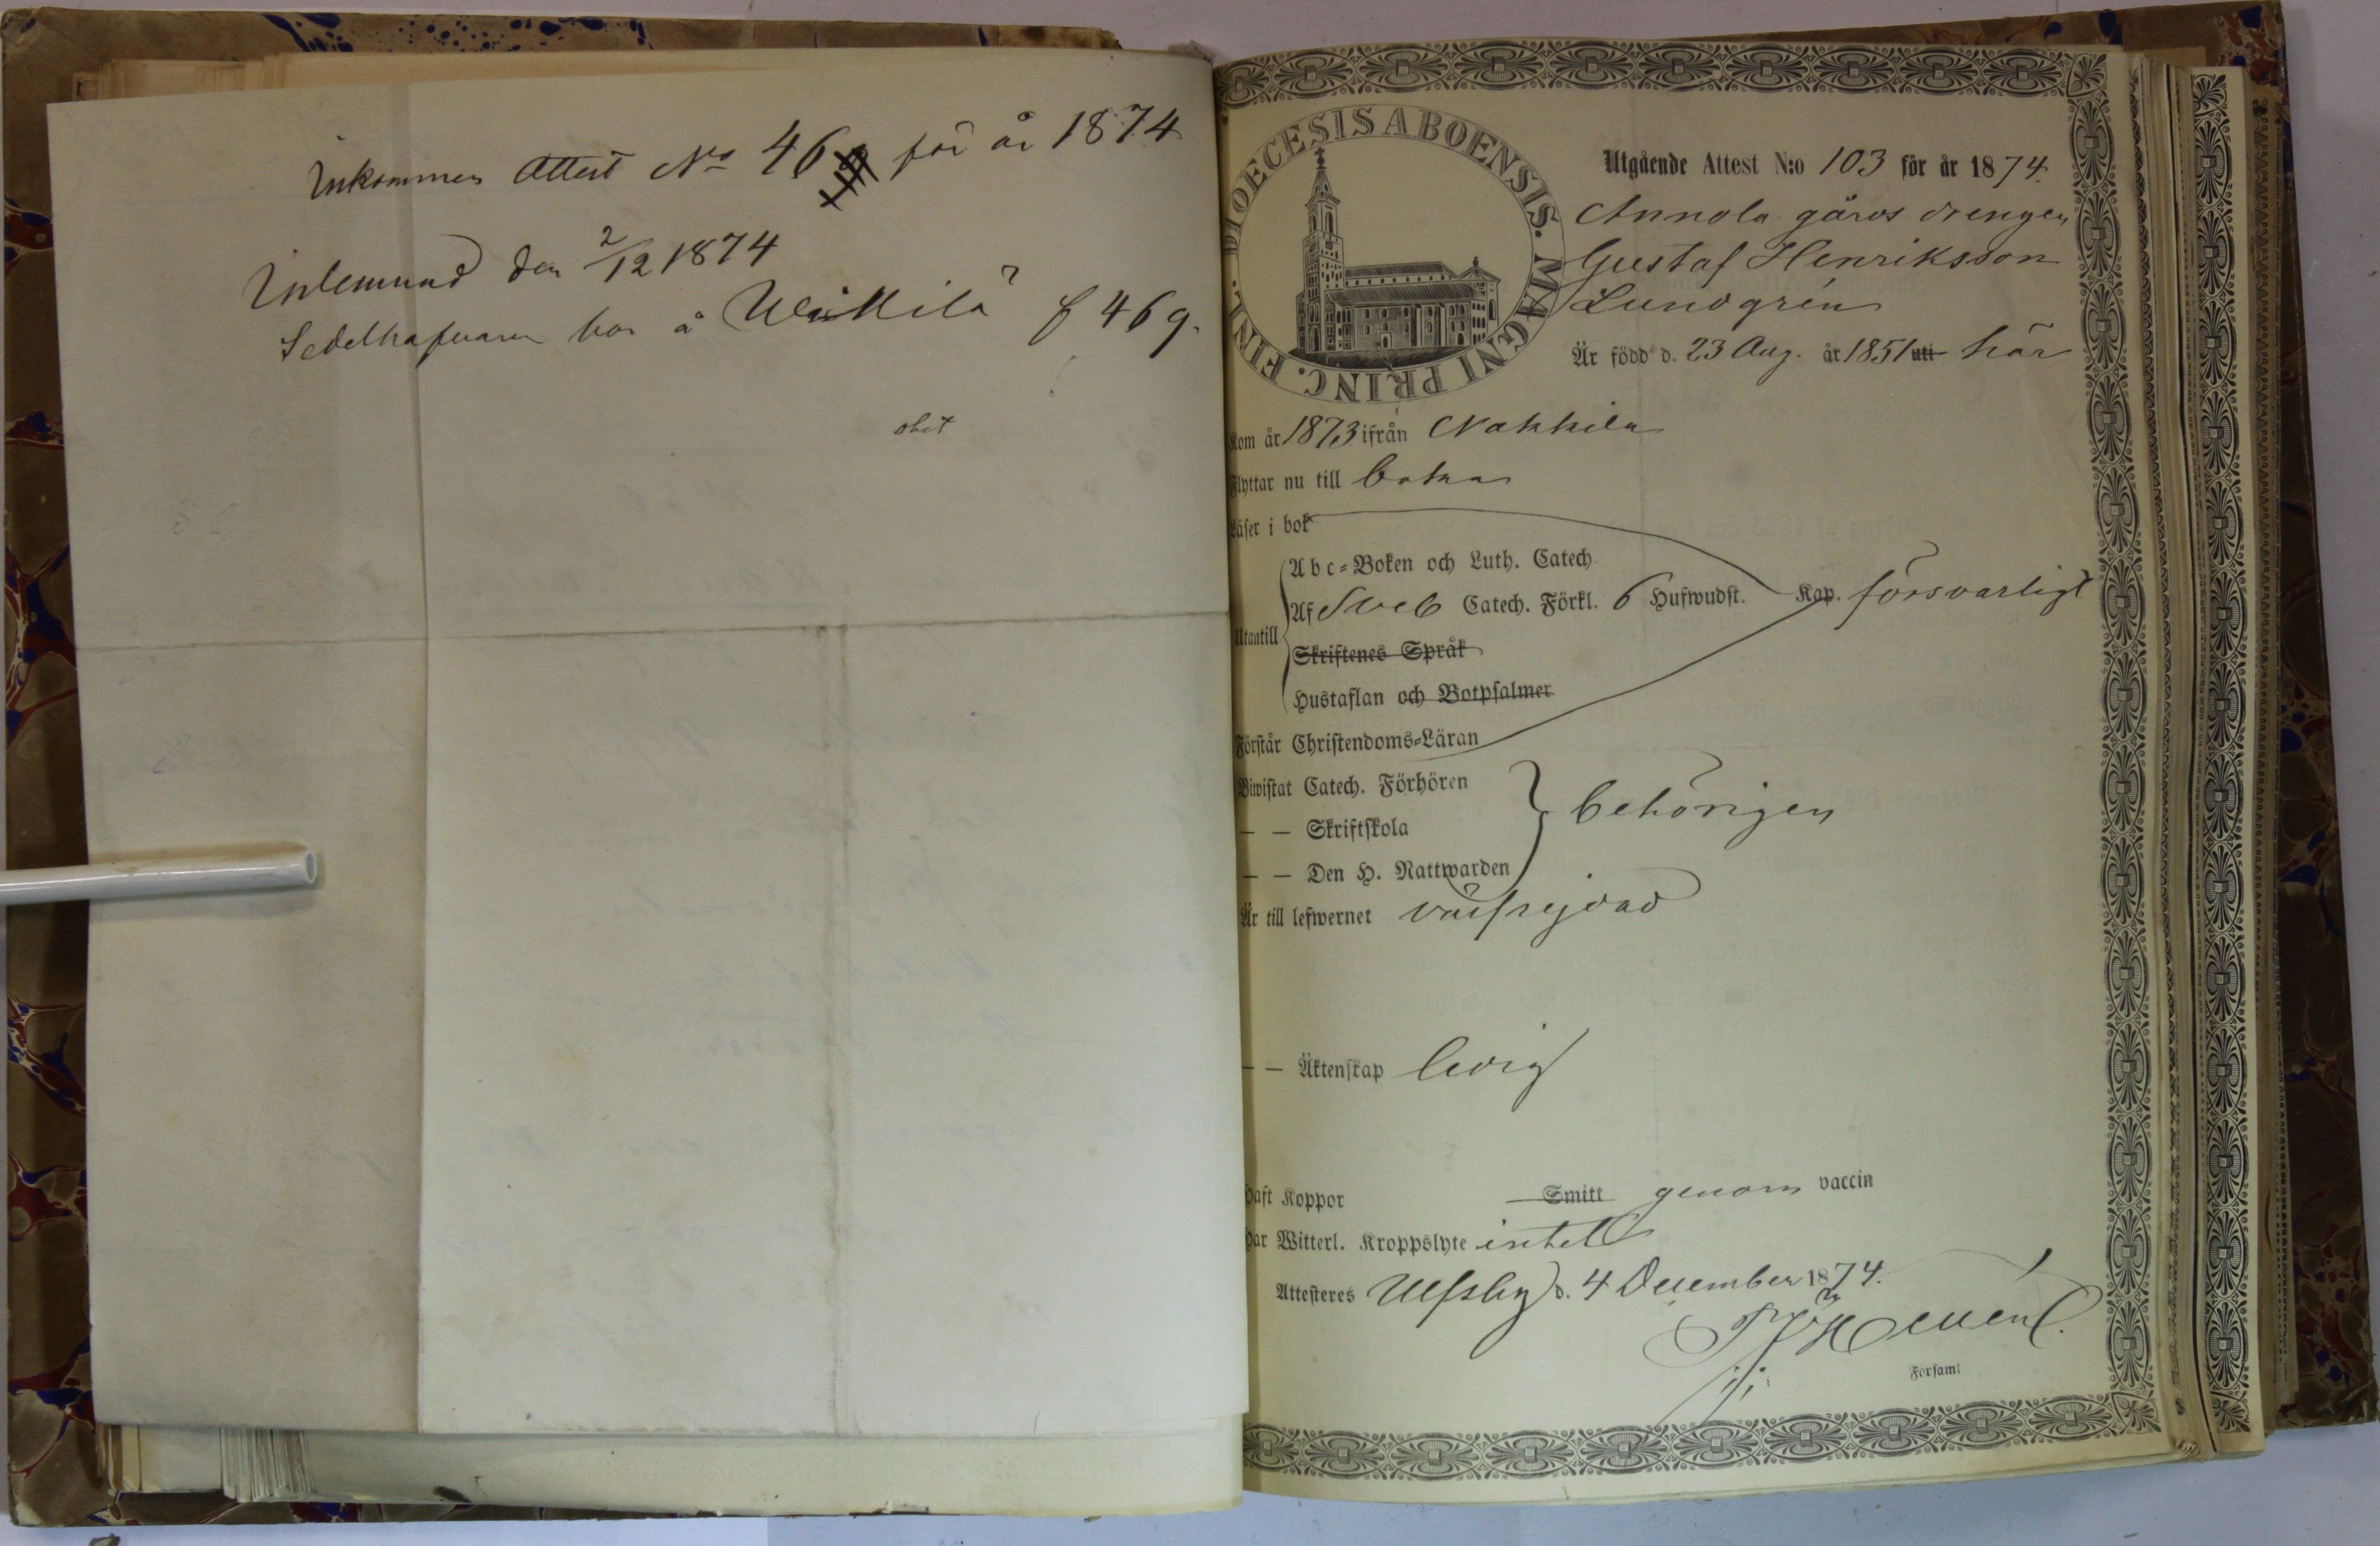 Inkommen Attest No 46 för år 1874
Inlemnad den 2/12 1874
Sedelhafvaren bor å f 469.
obet
DIOECESIS ABOENSIS. MAGNI PRINC. FINL.
Utgående Attest N:o 103 för år 1874.
Annola gårds drengen
Gustaf Henriksson
Lundgrén
Är född d. 23 Aug. år 1851 uti här
Kom år 1873 ifrån Nakkila
Flyttar nu till
Läser i bok
Abc=Boken och Luth. Catech.
Utantill Af Sveb Catech. Förkl. 6 Hufwudst. Kap. försvarligt
Skriftenes Språk
Hustaflan och Botpsalmer
Förstår Christendoms=Läran
Biwistat Catech. Förhören
— — Skriftskola behörigen
— — Den H. Nattwarden
Är till lefwernet välfrejdad
— — Äktenskap ledig
Haft Koppor Smitt genom vaccin
Har Witterl. Kroppslyte intet
Attesteres Ulfsby d. 4 December 1874.
Forsaml